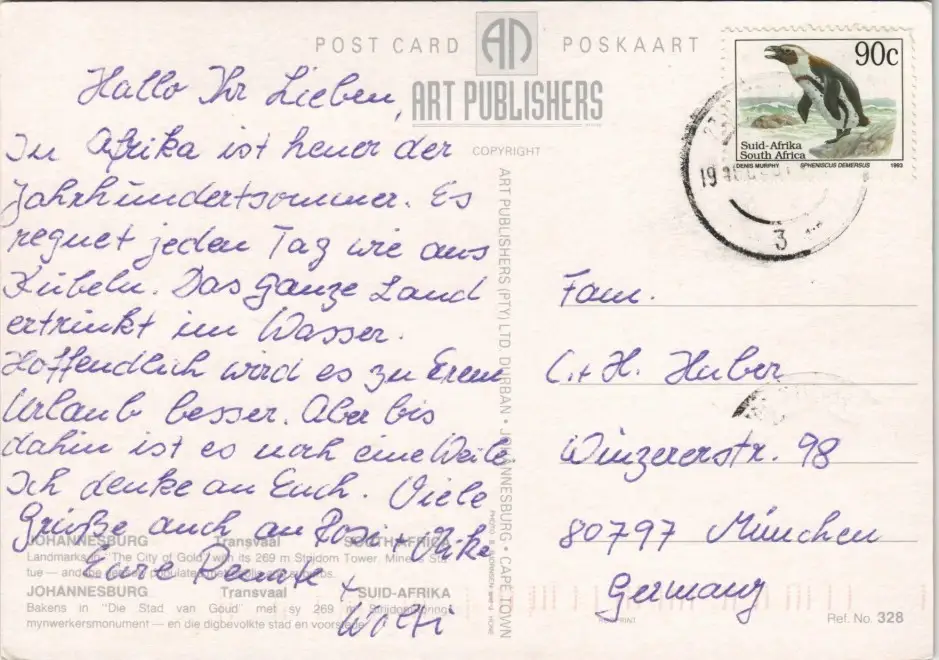 POST CARD
POSKAART
ART PUBLISHERS
COPYRIGHT
90c
Suid-Afrika
South Africa
DENIS MURPHY SPHENISCUS DEMERSUS 1993
19
3
Hallo Ihr Lieben,
In Afrika ist heuer der
Jahrhundertsommer. Es
regnet jeden Tag wie aus
Kübeln. Das ganze Land
ertrinkt im Wasser.
Hoffendlich wird es zu Eurem
Urlaub besser. Aber bis
dahin ist es noch eine Weile
Ich denke an Euch. Viele
Grüße auch an Rosi + Ulrike
Eure Renate
+
Wolfi
Fam.
C. + H. Huber
Winzererstr. 98
80797 München
Germany
ART PUBLISHERS (PTY) LTD. DURBAN • JOHANNESBURG • CAPE TOWN
JOHANNESBURG Transvaal SOUTH AFRICA
Landmarks in "The City of Gold" with its 269 m Strijdom Tower. Miners Sta-
tue — and the
JOHANNESBURG Transvaal SUID-AFRIKA
Bakens in "Die Stad van Goud" met sy 269 m Strijdomtoring
mynwerkersmonument — en die digbevolkte stad en voorstede
Ref. No. 328